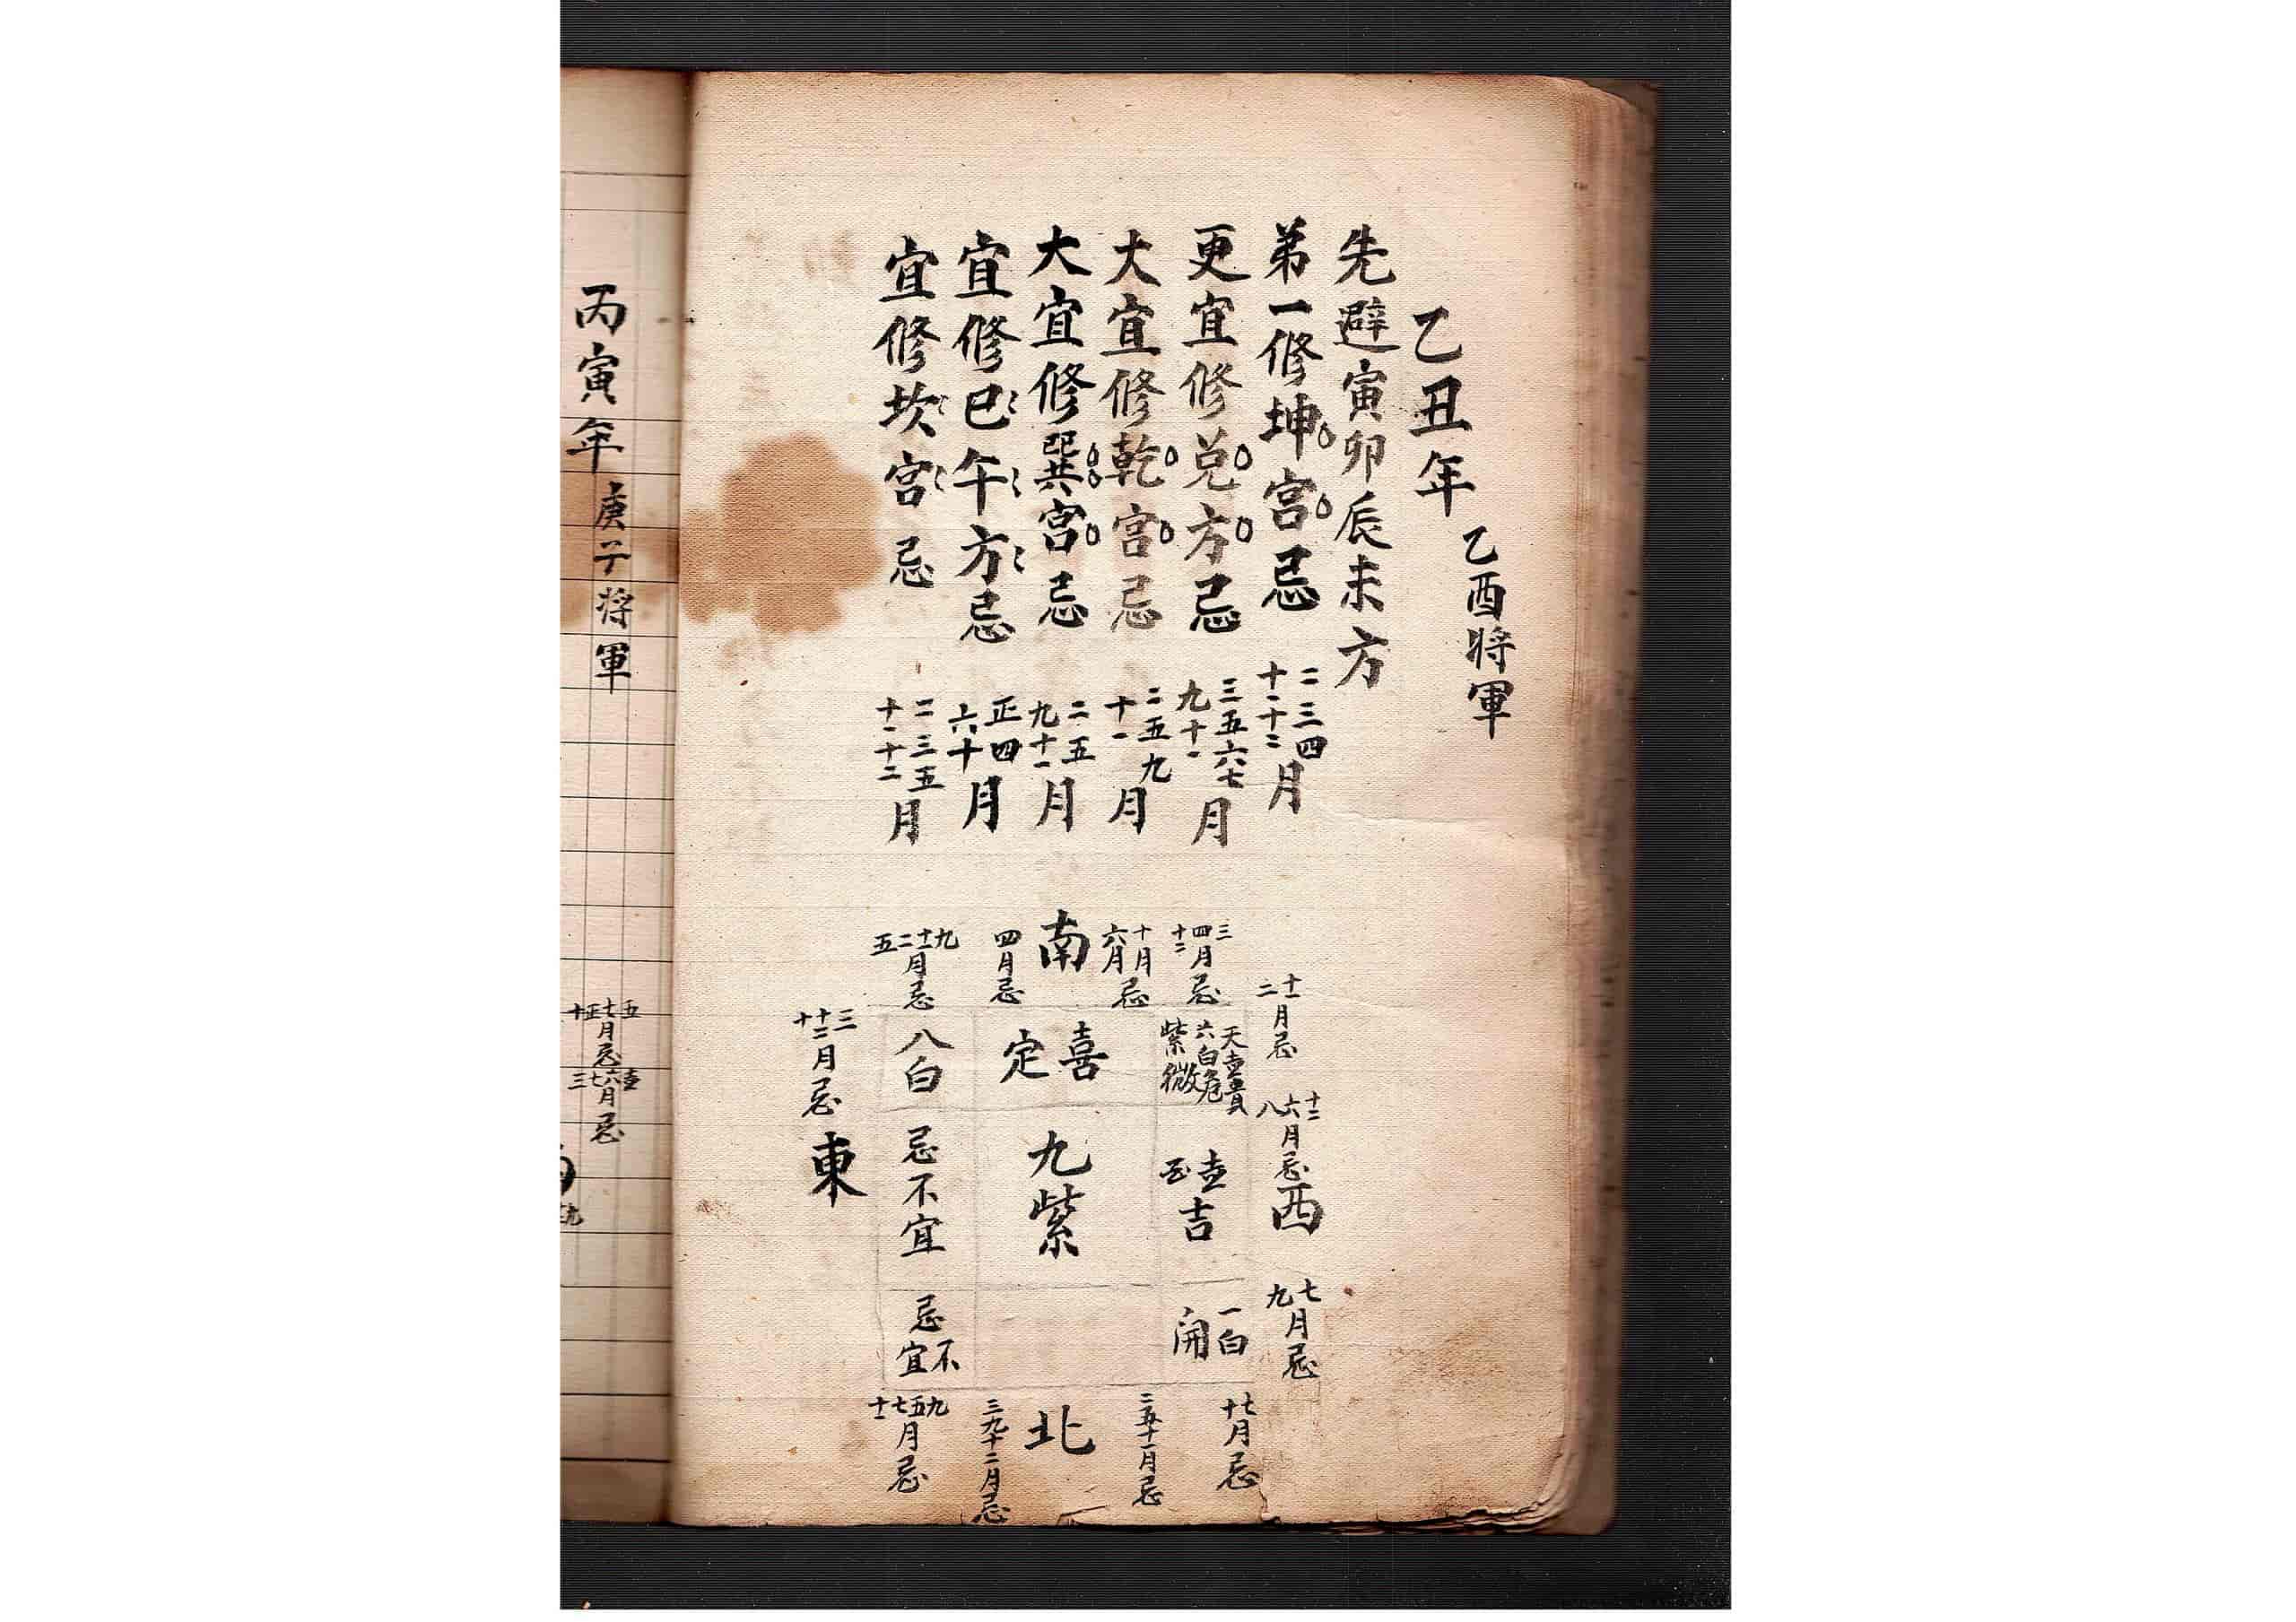 乙酉將軍
乙丑年
先避寅卯辰未方
弟一修坤宮忌二三四十一十二月
更宜修兌方忌三五六七九十一月
大宜修乾宮忌二五九十一月
大宜修巽宮忌二五九十一月
宜修巳午方忌正四六十月
宜修坎宮忌二三五十一十二月
十一二月忌
十二六八月忌
西
七九月忌
三四十二月忌
十月六月忌
南
四月忌
九十一二五月忌
天壹貴
六白危
紫微
喜
定
八白
壹吉
九紫
忌不宜
一白
開
忌不宜
三十二十月忌
東
七十月忌
二五十一月忌
北
三九十二月忌
九五七十一月忌
丙寅年
庚子將軍
五七正十月忌
六七三月忌